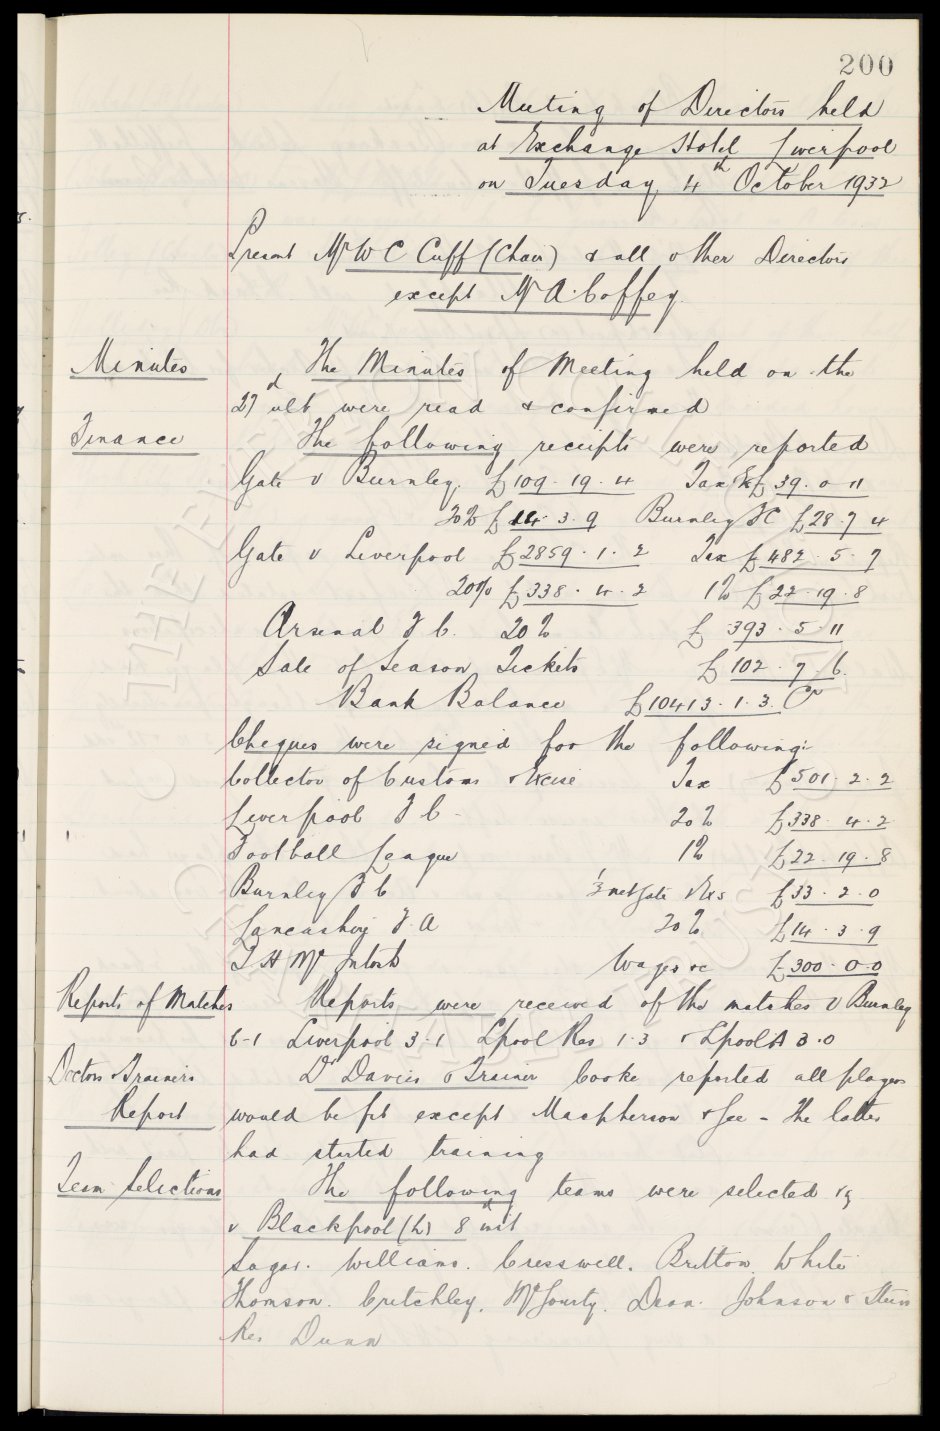 200
Meeting of Directors held
at Exchange Hotel Liverpool
on Tuesday 4th October 1932
Present Mr W C Cuff (Chair) & all other Directors
except Mr A. Coffey.
Minutes The Minutes of Meeting held on the
27 ult were read & confirmed
Finance The following receipts were reported
Gate v Burnley. £109.19.4 Tax £39.0.11
20% £14.3.9 Burnley FC £28.7.4
Gate v Liverpool £2859.1.2 Tax £482.5.7
20% £338.4.2 1% £22.19.8
Arsenal F C. 20% £393.5.11
Sale of Season Tickets £102.7.6.
Bank Balance £10413.1.3. Cr
Cheques were signed for the following:-
Collector of Customs & Excise Tax £501.2.2
Liverpool F C - 20% £338.4.2
Football League 1% £22.19.8
Burnley F C ½ net gate £33.2.0
Lancashire F.A 20% £14.3.9
T H McIntosh Wages &c £300.0.0
Reports of Matches Reports were received of the matches v Burnley
6-1 Liverpool 3-1 Lpool Res 1.3 & Lpool A 3.0
Doctors & Trainers Dr Davies & Trainer Cooke reported all players
Report would be fit except Macpherson & Gee - the latter
had started training
Team Selections The following teams were selected vz
v Blackpool (h) 8th inst
Sagar. Williams. Cresswell. Britton. White
Thomson. Critchley. McGourty. Dean. Johnson & Stein
Res Dunn